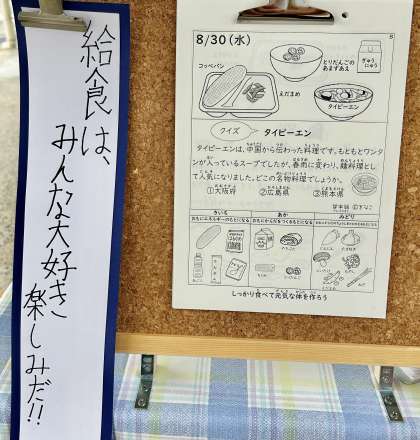 給食は、
みんな大好き
楽しみだ!!
8/30(水)
コッペパン
とりだんごの
あまずあえ
ぎゅう
にゅう
えだまめ
タイピーエン
クイズ
タイピーエン
タイピーエンは、中国から伝わった料理です。もともとワンタ
ンが入っているスープでしたが、春雨に変わり、麺料理とし
て人気になりました。どこの名物料理でしょうか。
①大阪府 ②広島県 ③熊本県
きいろ
あか
みどり
しっかり食べて元気な体を作ろう